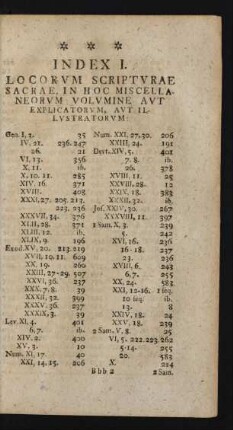 INDEX I.
LOCORVM SCRIPTVRAE
SACRAE, IN HOC MISCELLA-
NEORVM VOLVMINE AVT
EXPLICATORVM, AVT IL-
LVSTRATORVM.
Gen. I, 3. 35
IV, 11. 236. 247
26. 21
VI, 13. 356
X, 11. ib.
X, 10. 11. 285
XIV. 16. 371
XVIII. 408
XXXI, 27. 205. 213.
223. 236
XXXXVII, 34. 376
XLII, 28. 371
XLIII, 12. ib.
XLIX, 9. 196
Exod. XV, 20. 213. 219
XVII, 19. 11. 609
XX. 19. 260
XXIII, 27-29. 507
XXVI, 36. 237
XXX, 7. 8. 39
XXXII, 32. 399
XXXV, 36. 237
XXXIX, 3. 39
Lev. XI. 4. 401
6. 7. ib.
XIV, 2. 400
XV. 3. 10
Num. XI, 17. 40
XXI, 14. 15. 206
Num. XXI. 27. 30. 206
XXIII, 24. 191
Deut. XIV, 5. 401
7. 8. ib.
26. 378
XVIII. 11. 25
XXVIII, 28. 12
XXIX, 18. 383
XXXII, 32. ib.
Jos. XXIV, 30. 267
XXXVIII, 11. 397
1 Sam. X, 3. 239
5. 242
XVI, 16. 236
16-18. 237
23. 236
XVIII, 6. 243
6. 7. 255
XX. 24. 583
XXI, 12-16. 1 seq.
10 seq. ib.
13. 8
XXIV, 18. 24
XXV, 18. 239
2 Sam. V, 8. 25
VI, 5. 222. 223. 262
5-14. 255
20. 583
X. 214
B b b 2
2 Sam.